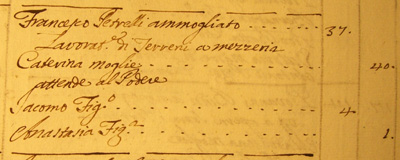 Francesco Petrelli ammogliato 37.
Lavorat.e di Terreni a mezzeria
Caterina moglie 40.
attende al Podere
Jacomo Fig.o 4
Anastasia Fig.a 1.